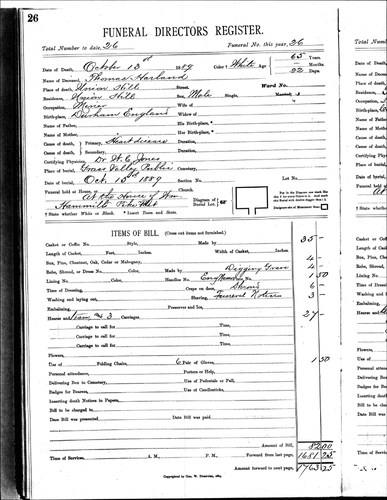 26
FUNERAL DIRECTORS REGISTER.
Total Number to date, 26 Funeral No. this year, 26
Date of Death, October 13th 1889 Color † White Age 65 Years
Months
22 Days
Name of Deceased, Thomas Harland
Place of death, Union Hill Street, Ward No.
Residence, Union Hill Sex, Male Single, Married,
Occupation, Miner Wife of
Birth-place, Durham England Widow of
Name of Father, His Birth-place, *
Name of Mother, Her Birth-place, *
Cause of death, Primary, Heart disease Duration,
Cause of death, Secondary, Duration,
Certifying Physician, Dr W. C. Jones
Place of burial, Grass Valley Public Cemetery
Date of burial, Oct 15th 1889 Section No. Lot No.
Funeral held at At the House of Wm. Church.
Hammill
Diagram of Burial Lot,
Put in the Diagram one mark
Designate site of Monument thus
† State whether White or Black. * Insert Town and State.
ITEMS OF BILL. (Cross out items not furnished.)
Casket or Coffin No. Style, Made by 35 -
Length of Casket, Feet, Inches. Width of Casket, Inches.
Box, Pine, Chestnut, Oak, Cedar or Mahogany, 4 -
Robe, Shroud, or Dress No. Color, Made by Digging Grave 4 -
Lining No. Color, Handles No. Engraving 1 50
Time of Dressing, Crape on door, Shroud 6 -
Washing and laying out, Shaving, Funeral Notices 3 -
Embalming, Preserver and Ice,
Hearse and team, and 3 Carriages 27 -
Carriage to call for Time,
Carriage to call for Time,
Carriage to call for Time,
Carriage to call for Time,
Flowers,
Use of Folding Chairs, 6 Pair of Gloves, 1 50
Personal attendance, Porters or Help,
Delivering Box to Cemetery, Use of Pedestals or Pall,
Badges for Bearers, Use of Candlesticks,
Inserting death Notices in Papers,
Bill to be charged to
Date Bill was presented Date Bill was paid
Amount of Bill, 82 00
Time of Services, A. M., P. M. Forward from last page, 1681 25
Amount forward to next page, 1763 25